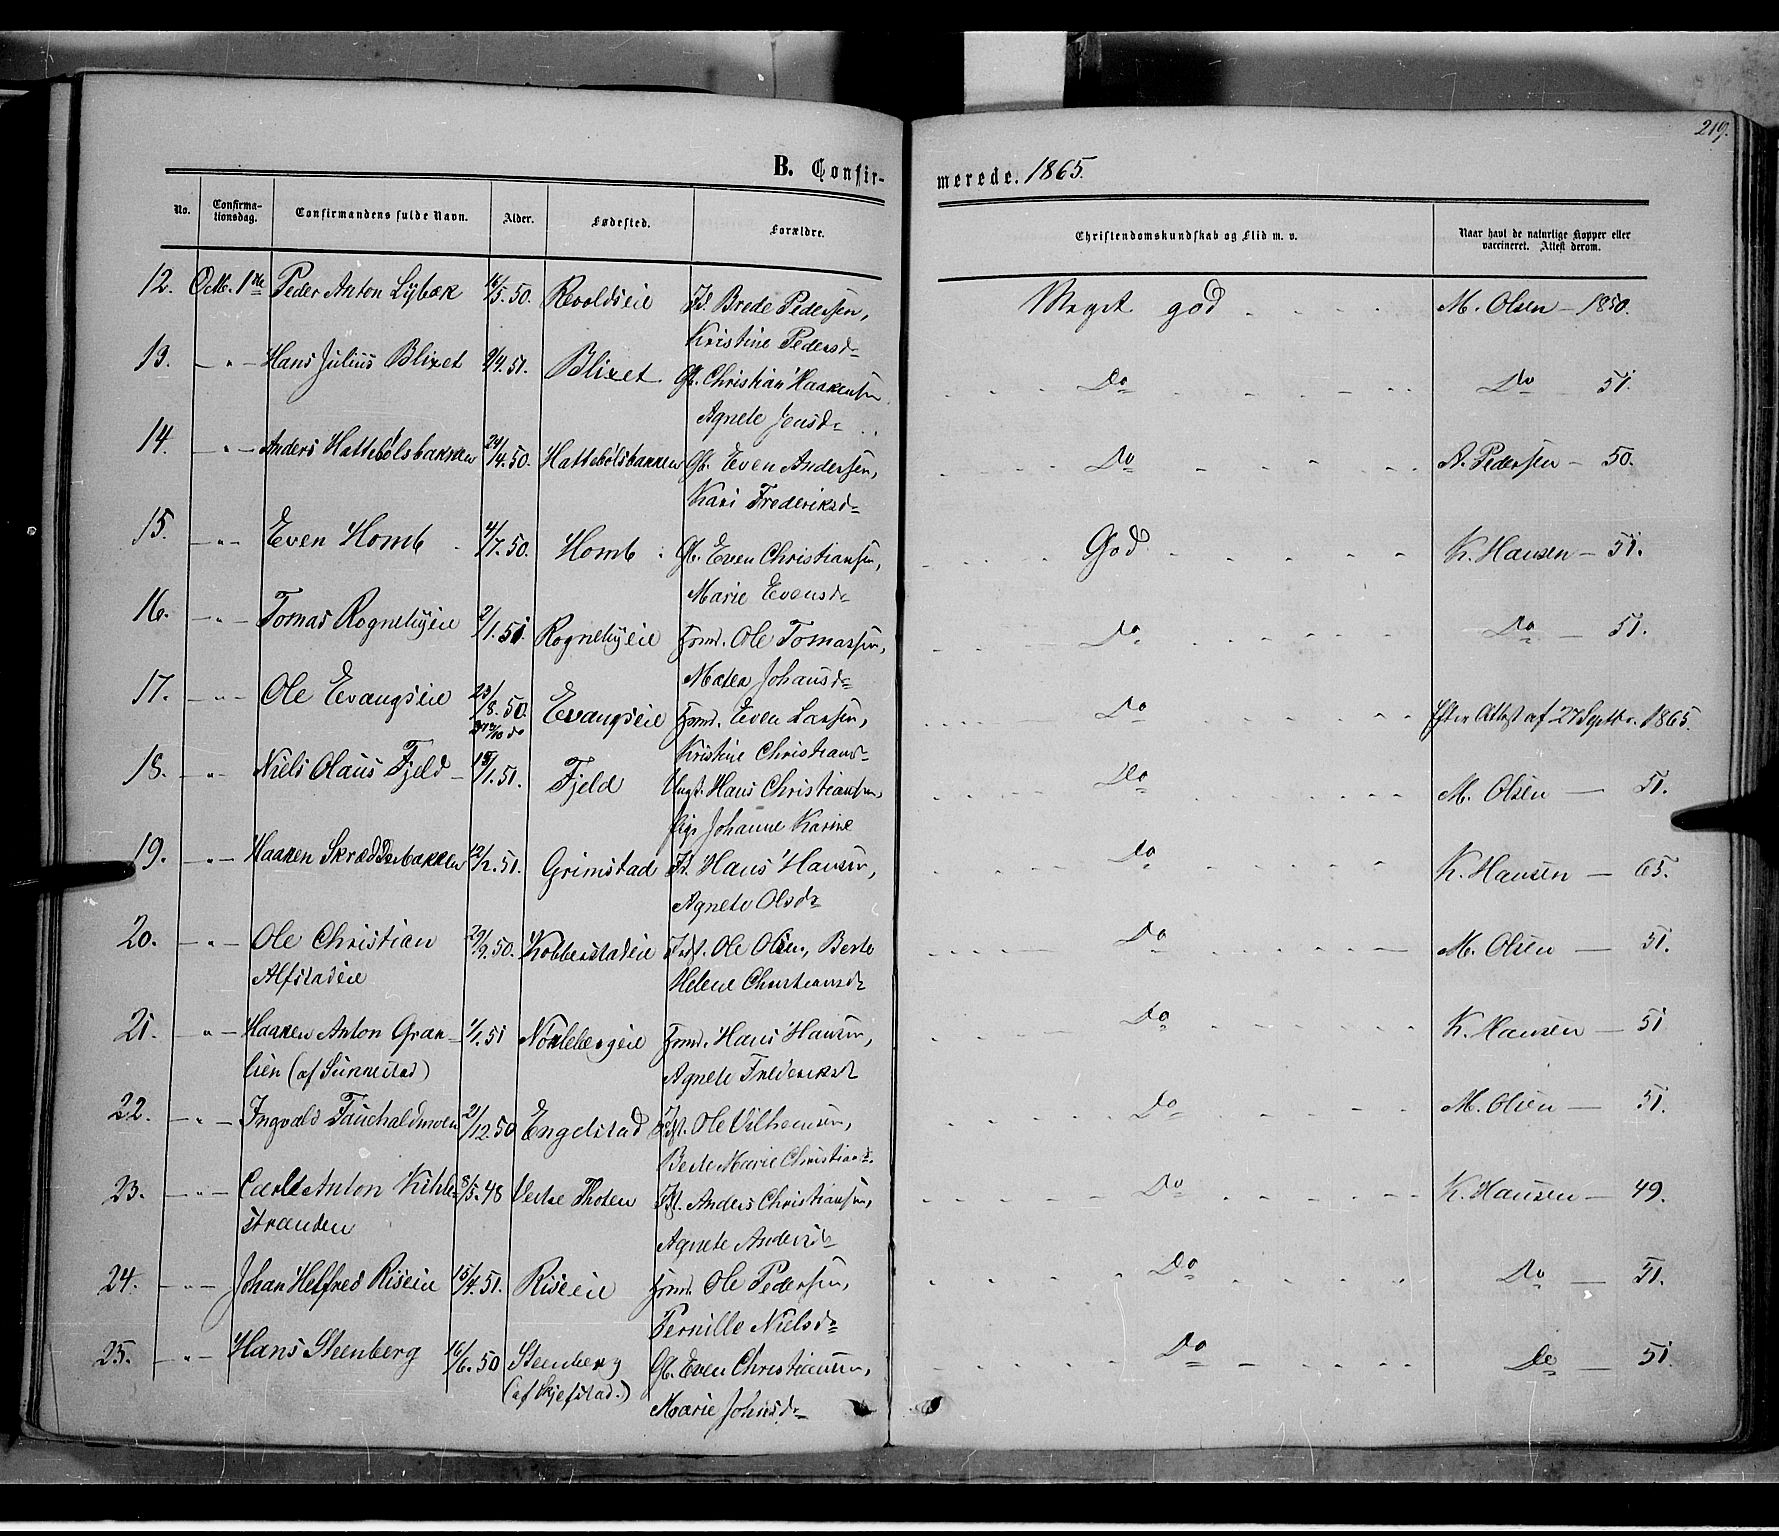 219.
B. Confirmerede. 1865.
No. Confirmationsdag. Confirmandens fulde Navn. Alder. Fødested. Forældre. Christendomskundskab og Flid m. v. Naar havt de naturlige Kopper eller vaccineret. Attest derom.
12. Octb. 1ste Peder Anton Lybæk 16/5.50. Revoldseie Id. Brede Pedersen, Meget god M. Olsen - 1850.
Kristine Pedersd.
13. - " - Hans Julius Blixet 9/4.51. Blixet Gb. Christian Haakensen Do Do 51.
Agnete Jensd.
14. - " - Anders Hattebølsbakken 24/4.50. Hattebølsbakken Gb. Even Andersen, Do A. Pedersen - 50.
Kari Frederiksd.
15. - " - Even Homb 4/7.50. Homb Gb. Even Christiansen, God K. Hansen - 51.
Marie Evensd.
16. - " - Tomas Rognelyeie 2/1.51 Rognelyeie Hmd. Ole Tomassen, Do Do - 51.
Maren Johansd.
17. - " - Ole Evangseie 23/8.50. Evangseie Hmd. Even Larsen, Do Efter Attest af 27 Septbr. 1865.
Kristine Christiansd.
18. - " - Niels Olaus Fjeld 15/1.51. Fjeld Ungk. Hans Christiansen, Do M. Olsen - 51.
Pige Johanne Karine
19. - " - Haaken Skrædderbakken 12/2.51. Grimstad Id. Hans Hansen, Do K. Hansen - 65.
Agnete Olsd.
20. - " - Ole Christian 29/9.50. Kobberstadeie Indst. Ole Olsen, Berte Do M. Olsen - 51.
Alfstadeie Helene Christiansd.
21. - " - Haaken Anton Gran- 1/1.51 Nøkleber­geie Hmd. Hans Hansen, Do K. Hansen - 51
lien (af Sunnestad) Agnete Frederiksd.
22. - " - Ingvald Fauchaldmoen 2/12.50 Engelstad Idst. Ole Vilhemsen, Do M. Olsen - 51.
Berte Marie Christiansd.
23. - " - Carl Anton Kihle- 8/5.48 Vestre Thoten Idst. Anders Christiansen, Do K. Hansen - 49.
stranden Agnete Andersd.
24. - " - Johan Helfred Riseie 15/4.51. Riseie Hmd. Ole Pedersen, Do Do - 51.
Pernille Nielsd.
25. - " - Hans Steenberg 16/6.50 Steenberg Gb. Even Christiansen, Do Do - 51.
(af Skjefstad.) Marie Johnsd.